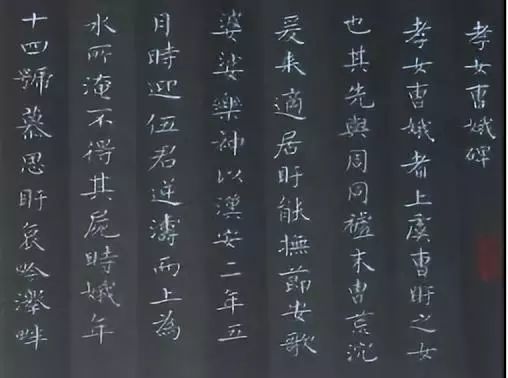 孝女曹娥碑
孝女曹娥者上虞曹盱之女
也其先與周同禮末曹荒沉
爰来適居盱能撫節安歌
婆娑樂神以漢安二年五
月時迎伍君逆濤而上為
水所淹不得其屍時娥年
十四號慕思盱哀吟澤畔